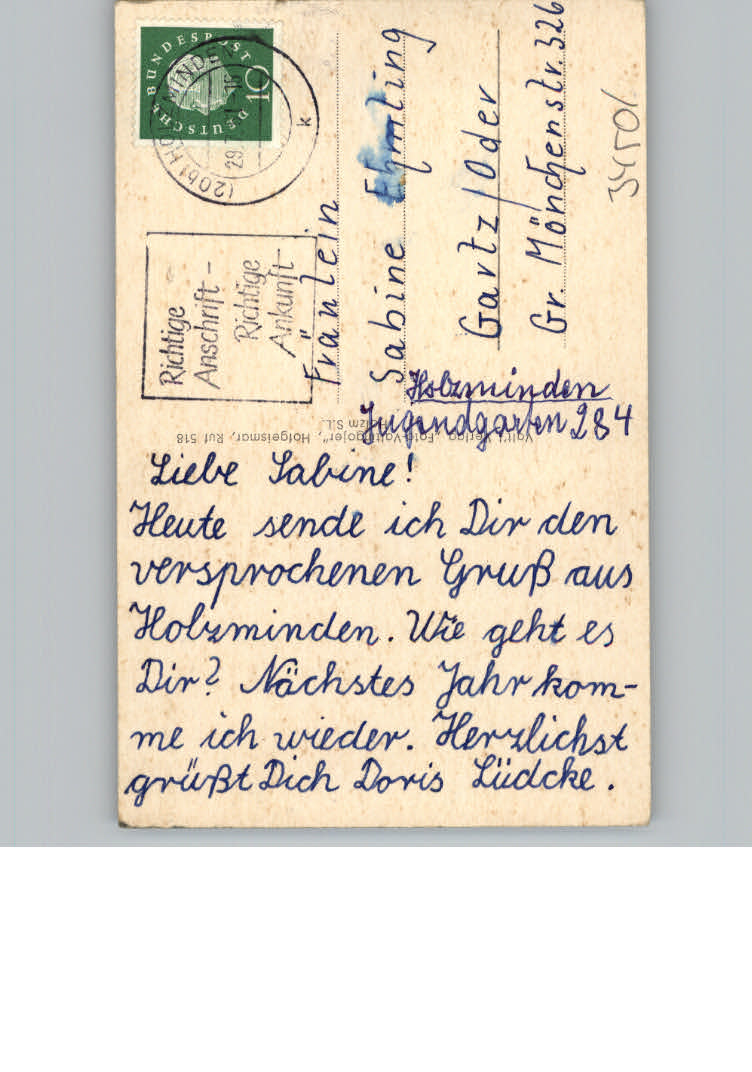 DEUTSCHE BUNDESPOST
10
(20b) HOLZMINDEN
29
k
Richtige
Anschrift -
Richtige
Ankunft
Fräulein
Sabine
Gartz/Oder
Gr. Mönchenstr. 326
Holzminden
Jugendgarten 284
Hofgeismar, Ruf 518
Liebe Sabine!
Heute sende ich Dir den
versprochenen Gruß aus
Holzminden. Wie geht es
Dir? Nächstes Jahr kom-
me ich wieder. Herzlichst
grüßt Dich Doris Lüdcke.